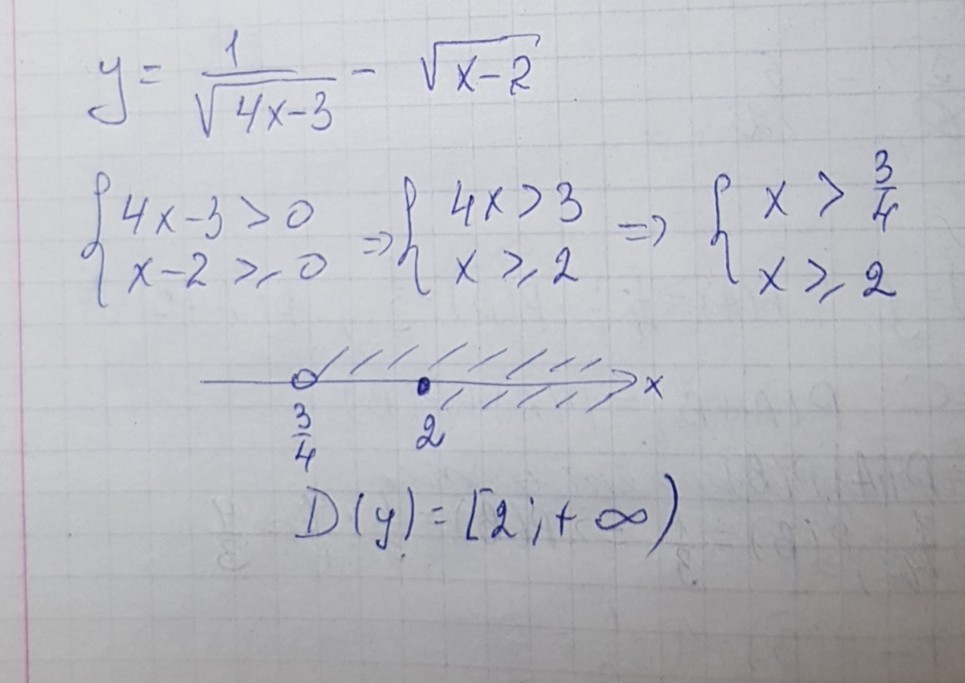 y = 1/√(4x-3) - √(x-2)
{4x-3>0 x-2⩾0 => {4x>3 x⩾2 => {x>3/4 x⩾2
x
3/4 2
D(y)=[2;+∞)